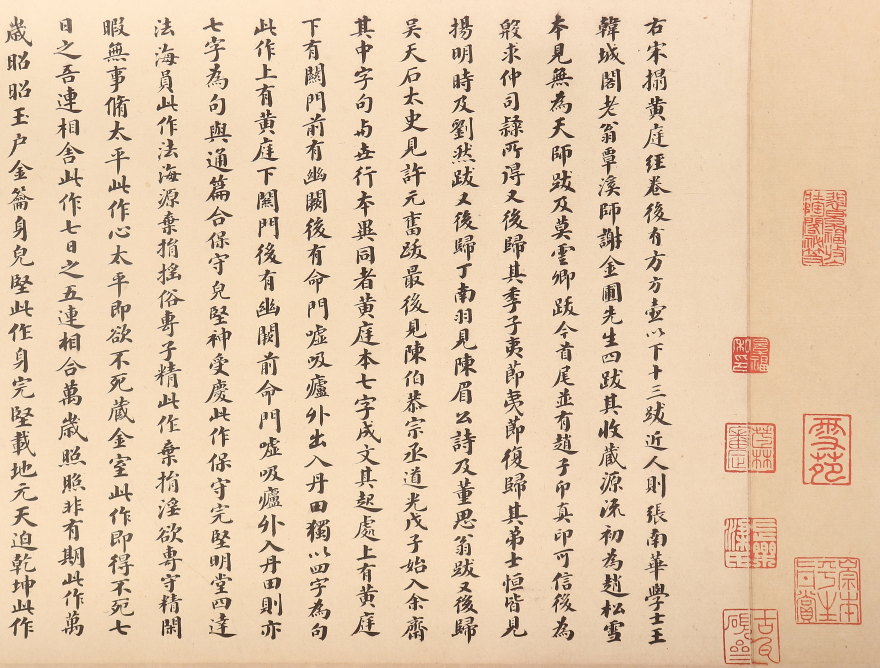 右宋搨黄庭經卷後有方方壺以下十三跋近人則張南華學士王
韓城閣老翁覃溪師謝金圃先生四跋其收藏源流初為趙松雪
本見無為天師跋及莫雲卿跋今首尾並有趙子卬真印可信後為
殷求仲司隸所得又後歸其季子夷節夷節復歸其弟士恒皆見
揚明時及劉然跋又後歸丁南羽見陳眉公詩及董思翁跋又後歸
吴天石太史見許元畧跋最後見陳伯恭宗丞道光戊子始入余齋
其中字句与世行本異同者黄庭本七字成文其起處上有黄庭
下有關門前有幽闕後有命門嘘吸廬外出入丹田獨以四字為句
此作上有黄庭下關門後有幽闕前命門嘘吸廬外入丹田則亦
七字為句與通篇合保守皃堅神受慶此作保守完堅明堂四達
法海員此作法海源棄捐搖俗專子精此作棄捐淫欲專守精閑
暇無事脩太平此作心太平即欲不死藏金室此作即得不死七
日之吾連相舎此作七日之五連相合萬歲照照非有期此作萬
歲昭昭玉户金籥身皃堅此作身完堅載地元天迫乾坤此作
雪苑